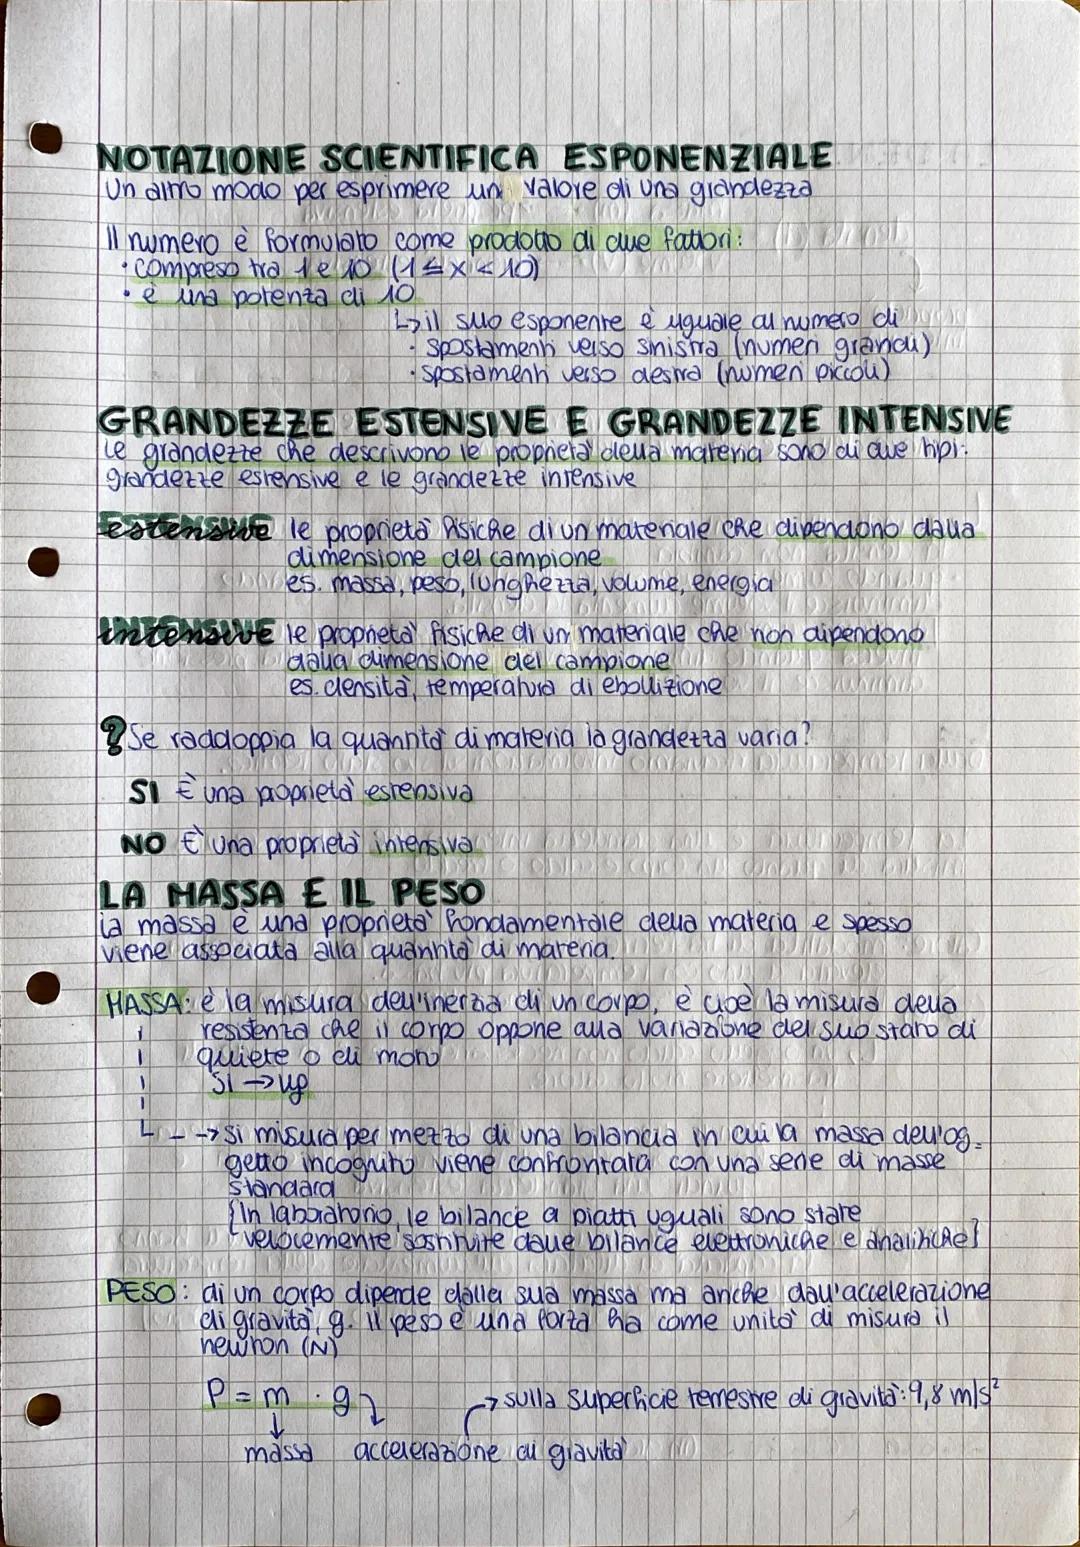 NOTAZIONE SCIENTIFICA ESPONENZIALE
Un altro modo per esprimere un valore di una grandezza
Il numero è formulato come prodotto di due fattori:
• compreso tra 1 e 10 (1 ≤ x < 10)
• è una potenza di 10
↳ il suo esponente è uguale al numero di
• spostamenti verso sinistra (numeri grandi)
• spostamenti verso destra (numeri piccoli)
GRANDEZZE ESTENSIVE E GRANDEZZE INTENSIVE
Le grandezze che descrivono le proprietà della materia sono di due tipi:
grandezze estensive e le grandezze intensive
estensive le proprietà fisiche di un materiale che dipendono dalla
dimensione del campione
es. massa, peso, lunghezza, volume, energia
intensive le proprietà fisiche di un materiale che non dipendono
dalla dimensione del campione
es. densità, temperatura di ebollizione
? Se raddoppia la quantità di materia la grandezza varia?
SI È una proprietà estensiva
NO È una proprietà intensiva
LA MASSA E IL PESO
la massa è una proprietà fondamentale della materia e spesso
viene associata alla quantità di materia.
MASSA: è la misura dell'inerzia di un corpo, è cioè la misura della
resistenza che il corpo oppone alla variazione del suo stato di
quiete o di moto
SI → kg
→ si misura per mezzo di una bilancia in cui la massa dell'og-
getto incognito viene confrontata con una serie di masse
standard
[In laboratorio, le bilance a piatti uguali sono state
velocemente sostituite dalle bilance elettroniche e analitiche]
PESO: di un corpo dipende dalla sua massa ma anche dall'accelerazione
di gravità, g. Il peso è una forza ha come unità di misura il
newton (N)
P = m · g → sulla superficie terrestre di gravità: 9,8 m/s²
massa accelerazione di gravità